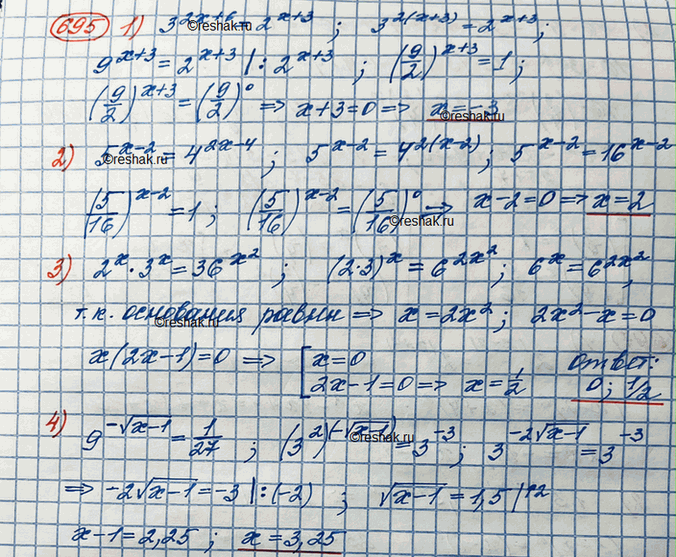 695 1) 3^(2x+6) = 2^(x+3) ; 3^(2(x+3)) = 2^(x+3);
9^(x+3) = 2^(x+3) |: 2^(x+3) ; (9/2)^(x+3) = 1;
(9/2)^(x+3) = (9/2)^0 => x+3=0 => x=-3
2) 5^(x-2) = 4^(2x-4) ; 5^(x-2) = 4^(2(x-2)); 5^(x-2) = 16^(x-2)
(5/16)^(x-2) = 1 ; (5/16)^(x-2) = (5/16)^0 => x-2=0 => x=2
3) 2^x · 3^x = 36^(x^2) ; (2·3)^x = 6^(2x^2); 6^x = 6^(2x^2);
т.к. основания равны => x = 2x^2; 2x^2-x=0
x(2x-1)=0 => [ x=0 ответ:
2x-1=0 => x=1/2 0; 1/2
4) 9^(-√(x-1)) = 1/27 ; (3^2)^(-√(x-1)) = 3^(-3) ; 3^(-2√(x-1)) = 3^(-3)
=> -2√(x-1) = -3 |:(-2) ; √(x-1) = 1,5 |↑2
x-1=2,25 ; x=3,25
©reshak.ru
©reshak.ru
©reshak.ru
©reshak.ru
©reshak.ru
©reshak.ru